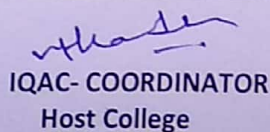 IQAC- COORDINATOR
Host College